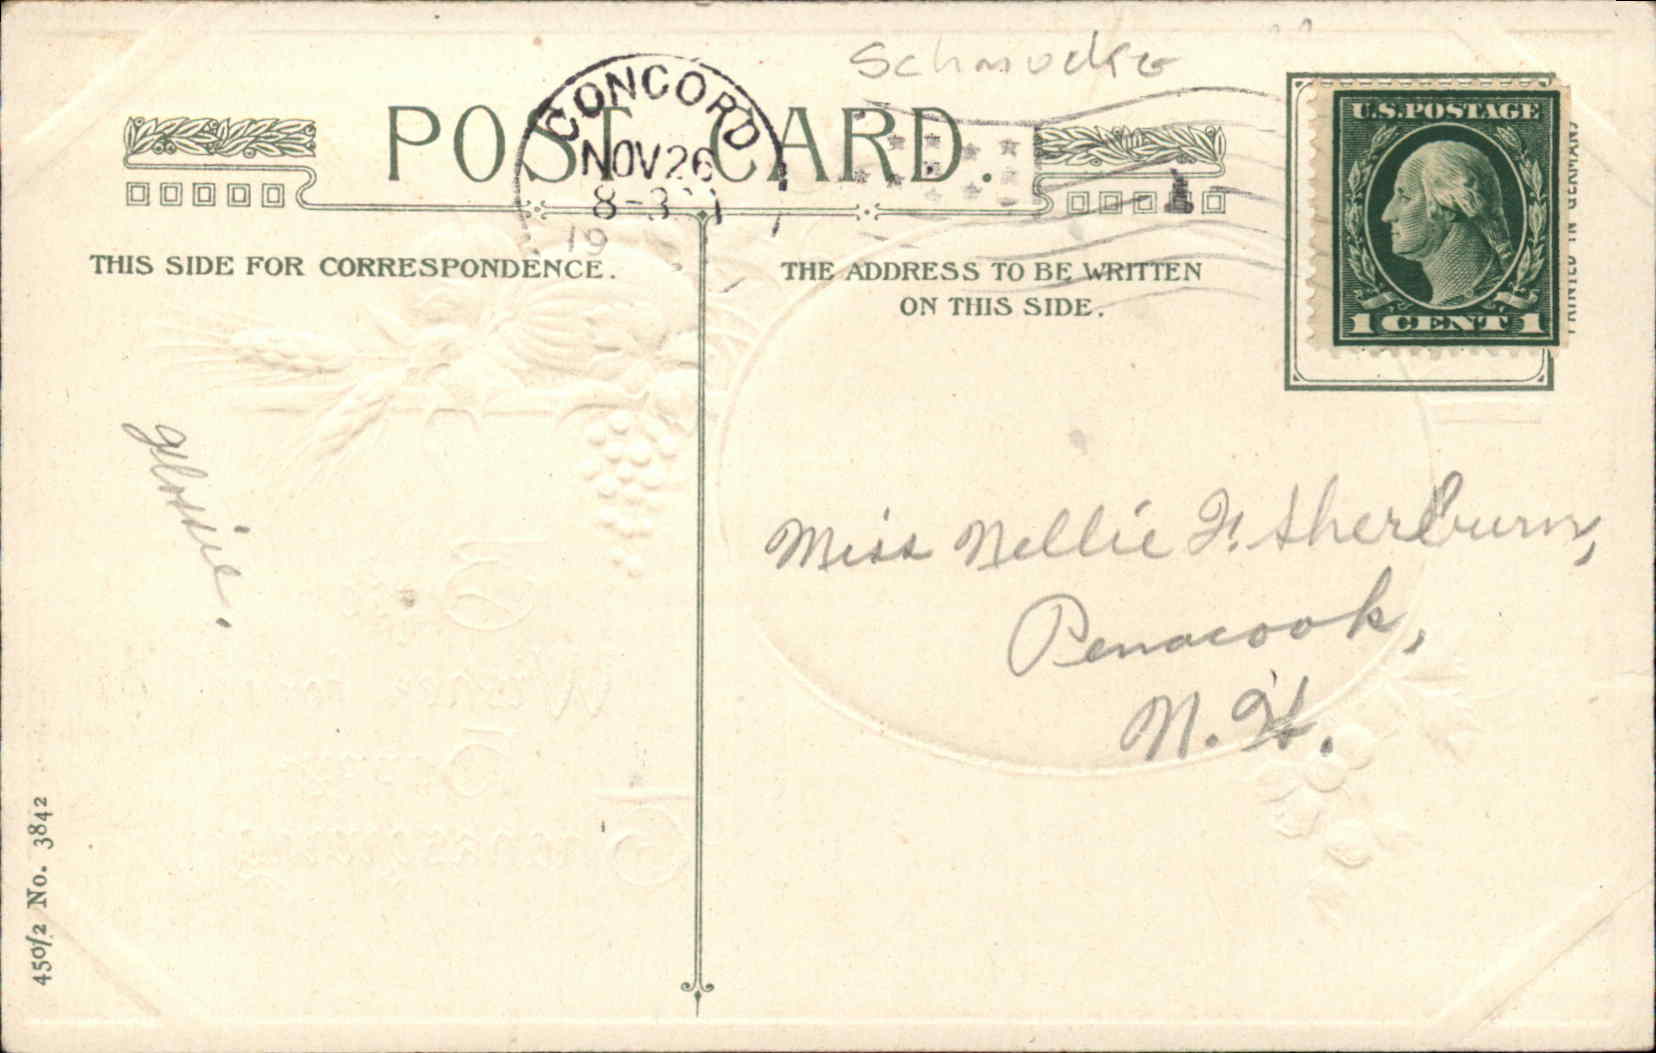 Schmucker
POST CARD.
CONCORD
NOV 26
8-3
19
THIS SIDE FOR CORRESPONDENCE.
THE ADDRESS TO BE WRITTEN
ON THIS SIDE.
U.S. POSTAGE
1 CENT 1
PRINTED IN GERMANY
Miss Nellie F. Sherburn,
Penacook,
N. H.
450/2 No. 3842